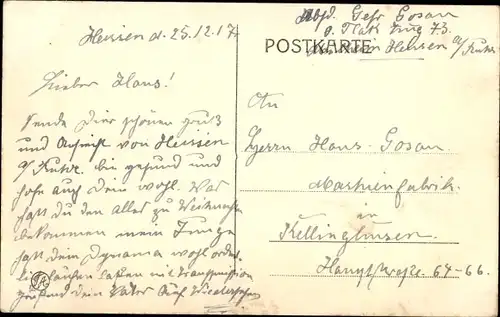 Heissen d. 25.12.17
Abs. Gefr. Gosau
9. Flak Zug 73.
POSTKARTE
Heissen a/Ruhr
Lieber Hans!
Sende Dier schönen Gruß
und Ansicht von Heissen
a/Ruhr. bin gesund und
hoffe auch dein wohl. Was
hast du den alles zu Weihnachten
bekommen mein Junge
hast dein Dynamo wohl ordent
lich laufen lassen mit Transmission
grüßend dein Vater Auf Wiedersehen
An
Herrn Hans Gosau.
Maschienfabrik.
in
Kellinghusen.
Hauptstraße 64-66.